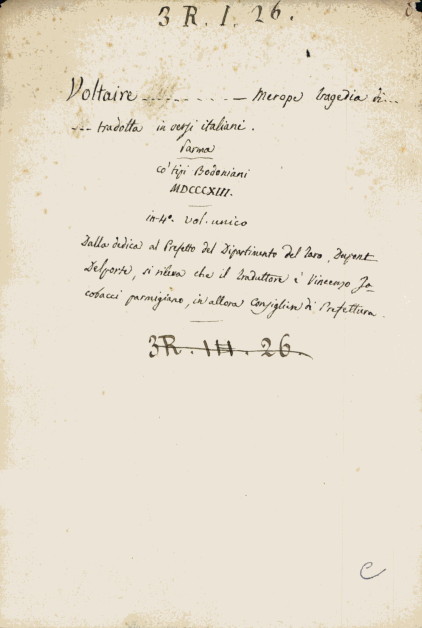 3 R. I. 26.
Voltaire ........ — Merope tragedia di...
... tradotta in versi italiani.
Parma
co' tipi Bodoniani
MDCCCXIII.
in-4º. vol. unico
Dalla dedica al Prefetto del Dipartimento del Taro, Dupont
Delporte, si rileva che il traduttore è Vincenzo Ja-
cobacci parmigiano, in allora Consigliere di Prefettura.
3R. III. 26.
C